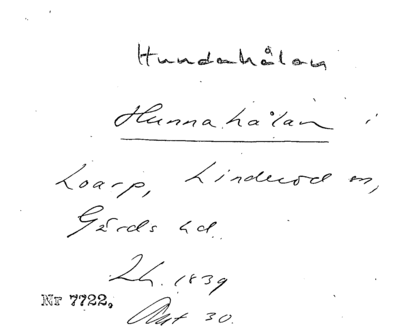 Hundahålan
Hunnahålan i
Loarp, Linderöd sn,
Gärds hd.
Lh. 1839
Nr 7722,
Akt 30.